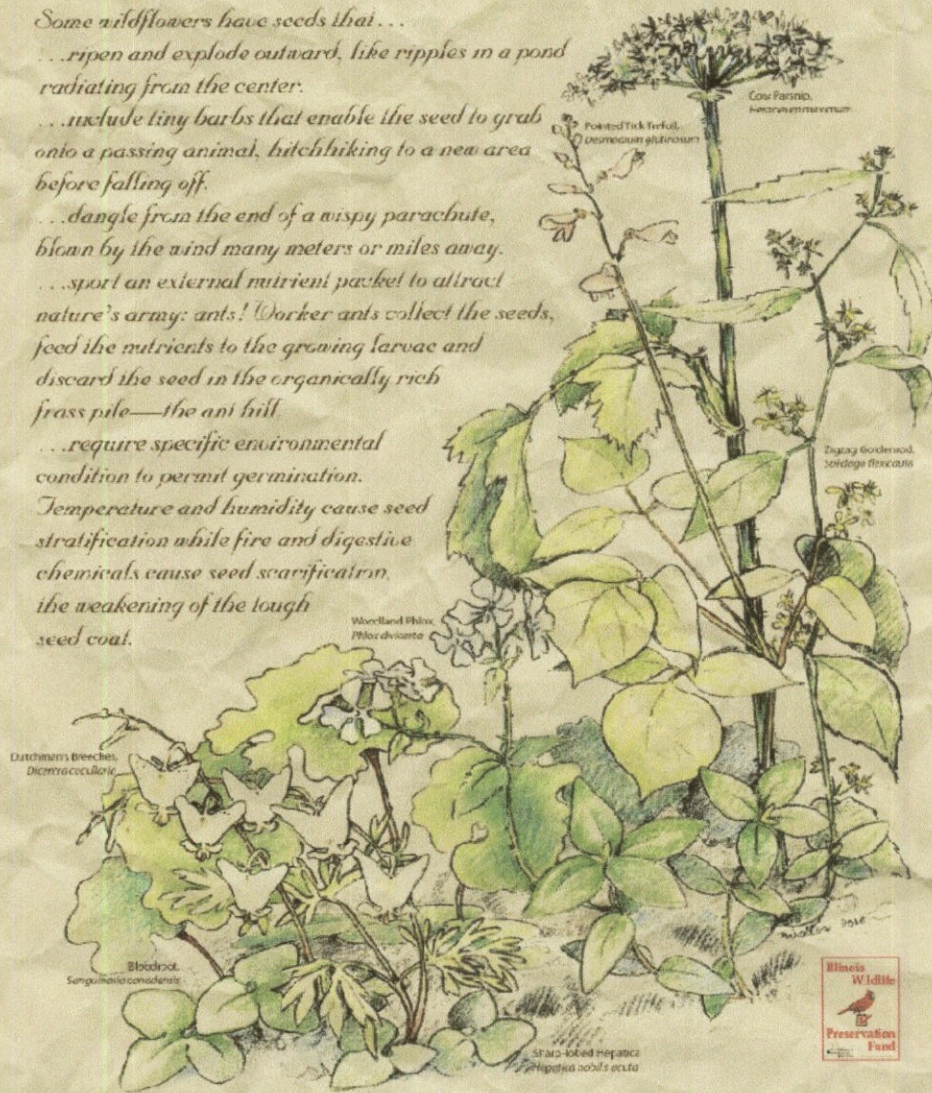 Some wildflowers have seeds that...
...ripen and explode outward, like ripples in a pond
radiating from the center.
...include tiny barbs that enable the seed to grab
onto a passing animal, hitchhiking to a new area
before falling off.
...dangle from the end of a wispy parachute,
blown by the wind many meters or miles away.
...sport an external nutrient packet to attract
nature's army: ants! Worker ants collect the seeds,
feed the nutrients to the growing larvae and
discard the seed in the organically rich
frass pile—the ant hill.
...require specific environmental
condition to permit germination.
Temperature and humidity cause seed
stratification while fire and digestive
chemicals cause seed scarification,
the weakening of the tough
seed coat.
Cow Parsnip,
Heracleum maximum
Pointed Tick Trefoil,
Desmodium glutinosum
Zigzag Goldenrod,
Solidago flexicaulis
Woodland Phlox,
Phlox divaricata
Dutchman's Breeches,
Dicentra cucullaria
Bloodroot,
Sanguinaria canadensis
Sharp-lobed Hepatica
Hepatica nobilis acuta
2010
Illinois
Wildlife
Preservation
Fund